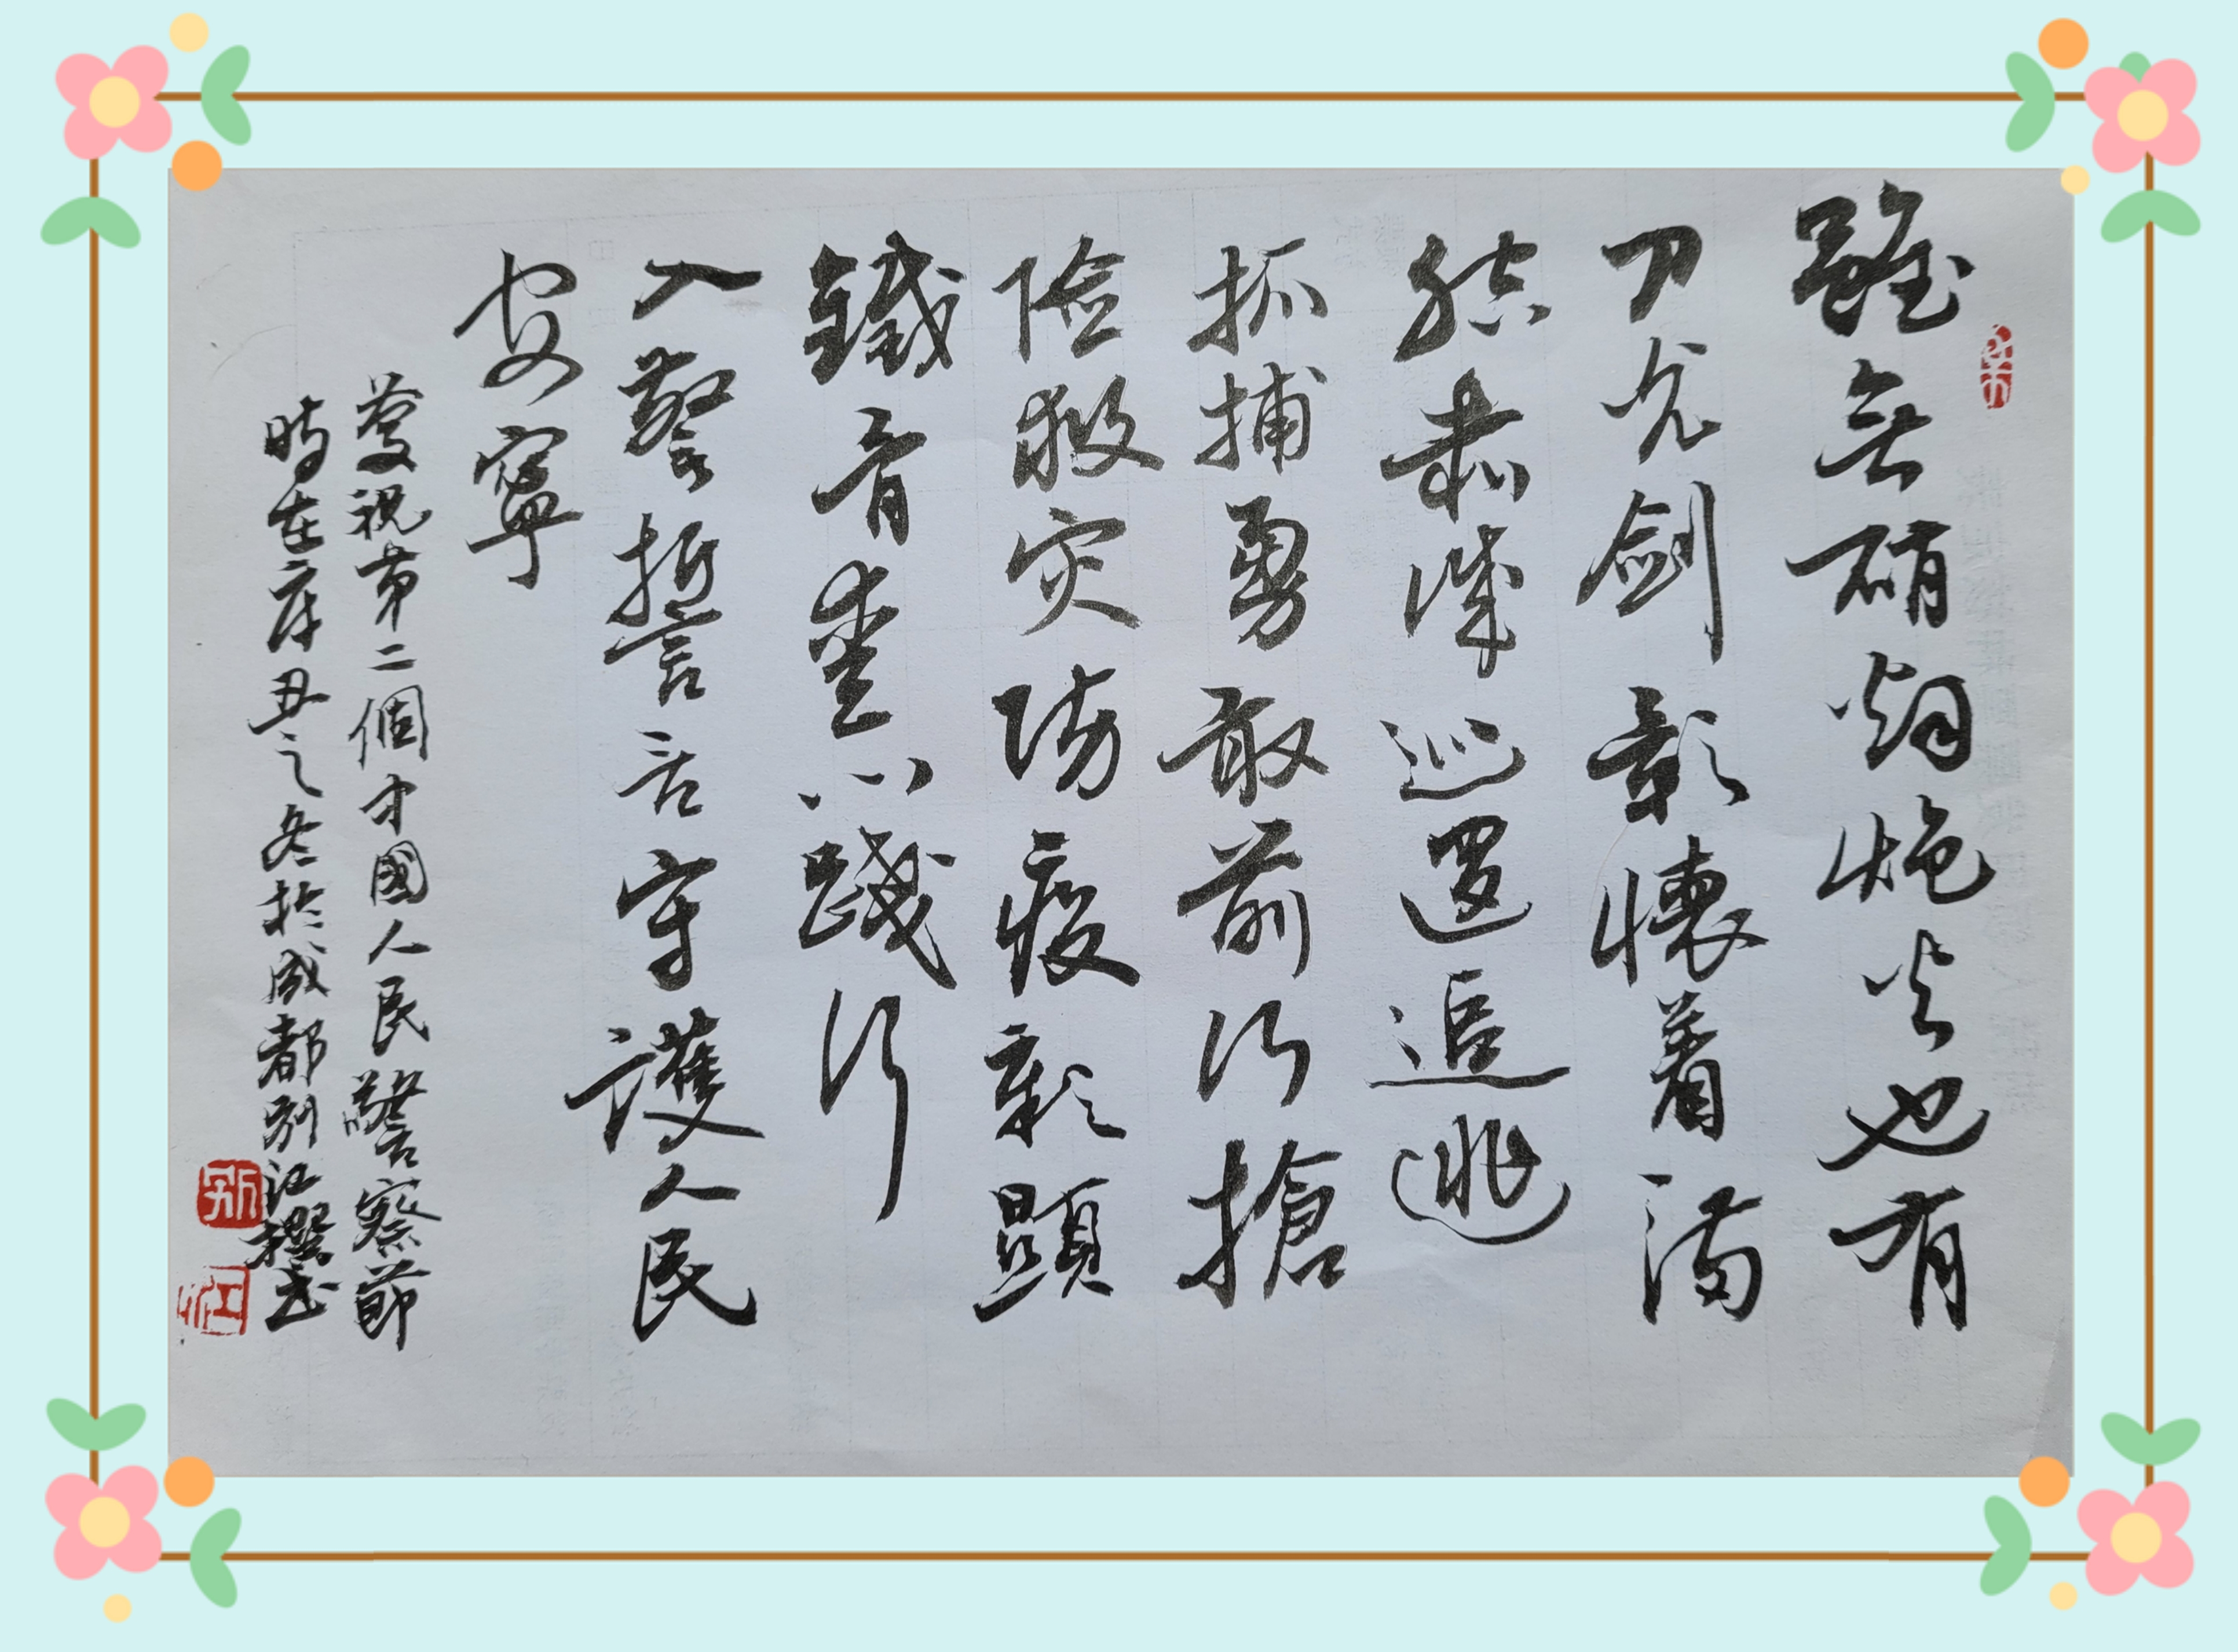 雖無硝烟炮火也有
刀光劍影懷着滿
腔赤誠巡邏追逃
抓捕勇敢前行搶
險救灾防疫彰顯
鐵骨心踐行
入警誓言守護人民
安寧
慶祝第二個中國人民警察節
時在庚丑之冬於成都别江撰書
别
江